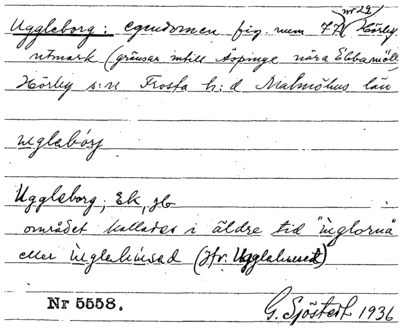 Uggleborg: egendomen fig. num 77 nr 29 Hörby
utmark (gränsar intill Äspinge nära Ebbamölla
Hörby s:n Frosta h:d Malmöhus län
uglabórj
Uggleborg, Ek, jb
området kallades i äldre tid "ùglorna"
eller ùglahùsad (jfr. Ugglahuset)
Nr 5558.
G. Sjöstedt 1936